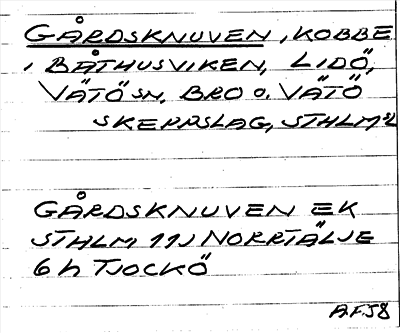 GÅRDSKNUVEN, KOBBE
i BÅTHUSVIKEN, LIDÖ,
VÄTÖ SN, BRO O. VÄTÖ
SKEPPSLAG, STHLM
GÅRDSKNUVEN EK
STHLM 11J NORRTÄLJE
6 h TJOCKÖ
AF58